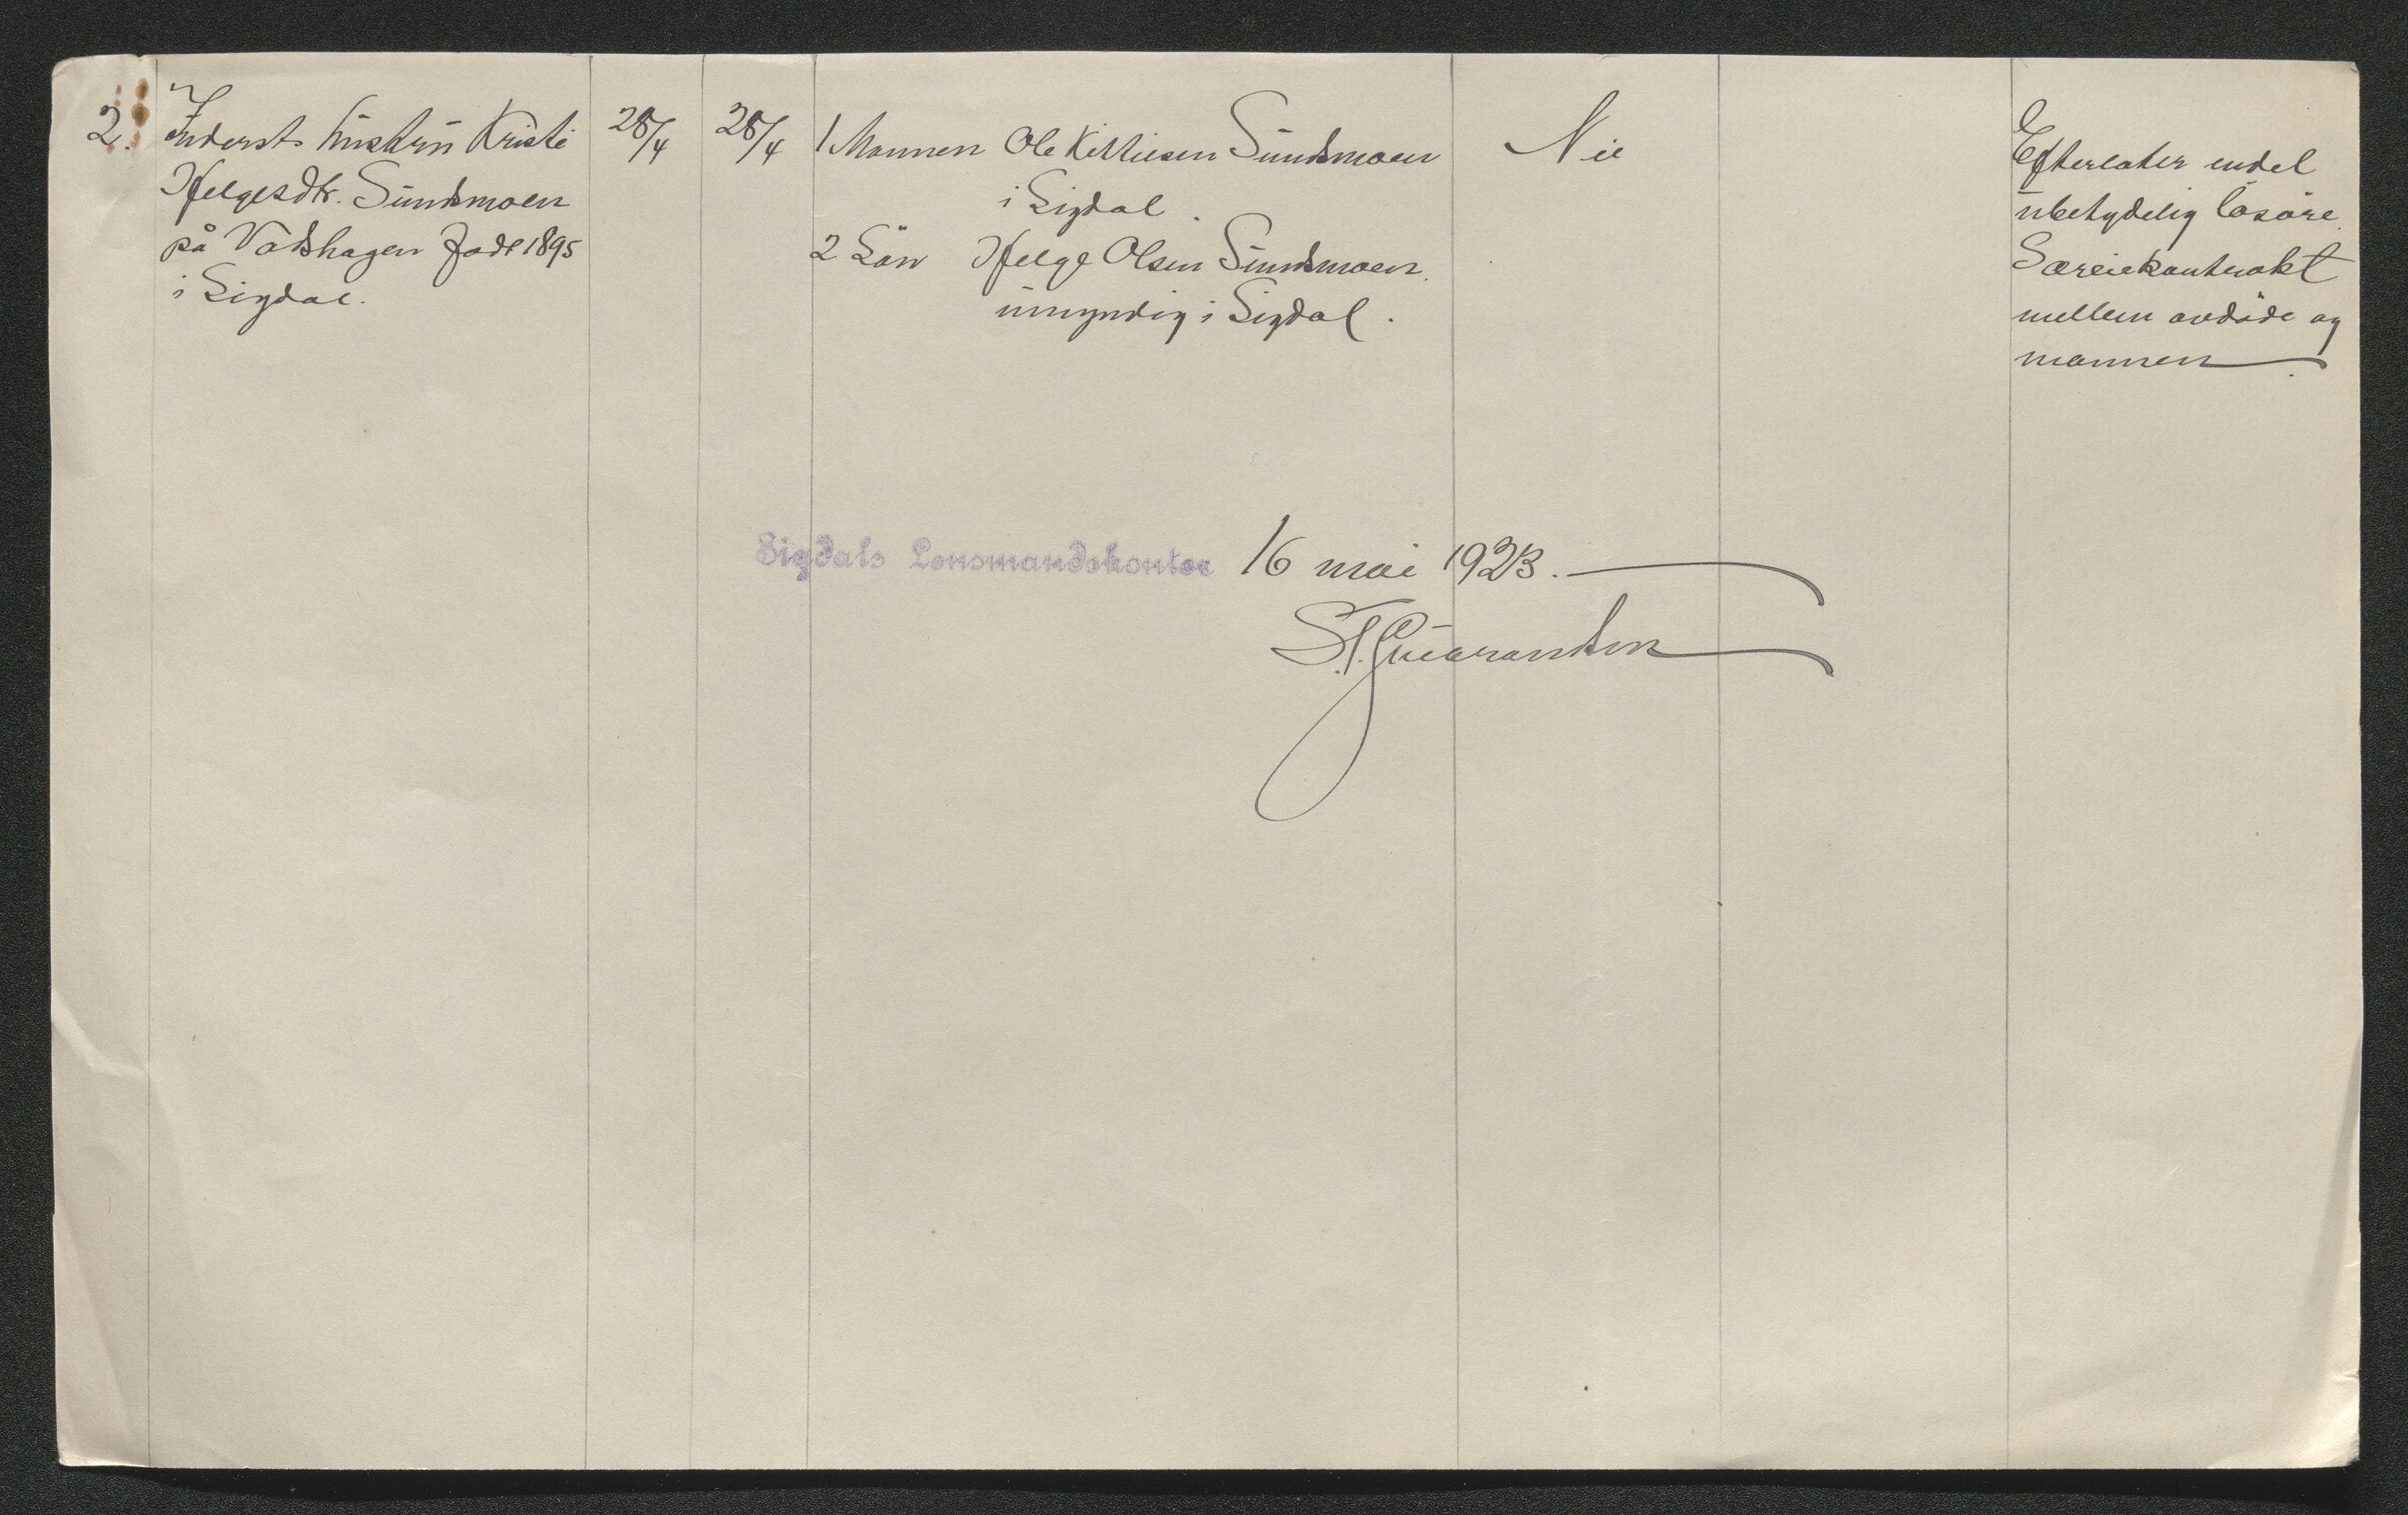 2. Inderst hustru Kristi
Helgesdtr. Sundsmoen
på Vadshagen Född 1895
i Sigdal.
28/4
28/4
1 Mannen Ole Kittilsen Sundsmoen
i Sigdal.
2 Sön Helge Olsen Sundsmoen.
umyndig i Sigdal.
Nil
Efterlater endel
ubetydelig lösöre.
Særeiekontrakt
mellem avdöde og
mannen.
Sigdals Lensmandskontor 16 mai 1923.